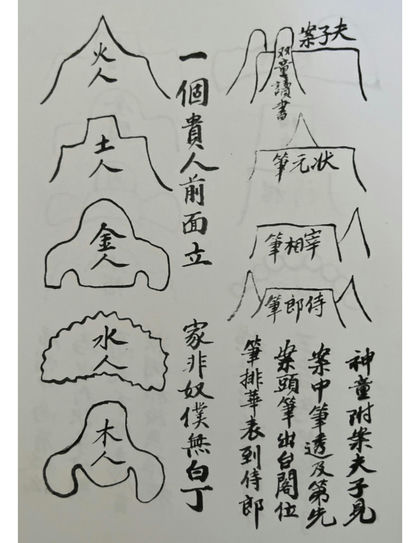 夫子案
双童讀書
状元筆
宰相筆
侍郎筆
神童附案夫子見
案中筆透及第先
案頭筆出台閣位
筆排華表到侍郎
一個貴人前面立
家非奴僕無白丁
火人
土人
金人
水人
木人